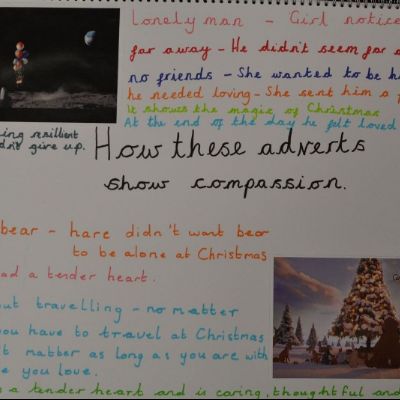 Lonely man - Girl notice
far away - He didn't seem far a
no friends - She wanted to be h
he needed loving - She sent him a
It shows the magic of Christmas
At the end of the day he felt loved
ing resilient
dn't give up.
How these adverts
show compassion.
bear - hare didn't want bear
to be alone at Christmas
ad a tender heart.
ut travelling - no matter
you have to travel at Christmas
t matter as long as you are with
e you love.
a tender heart and is caring, thoughtful and